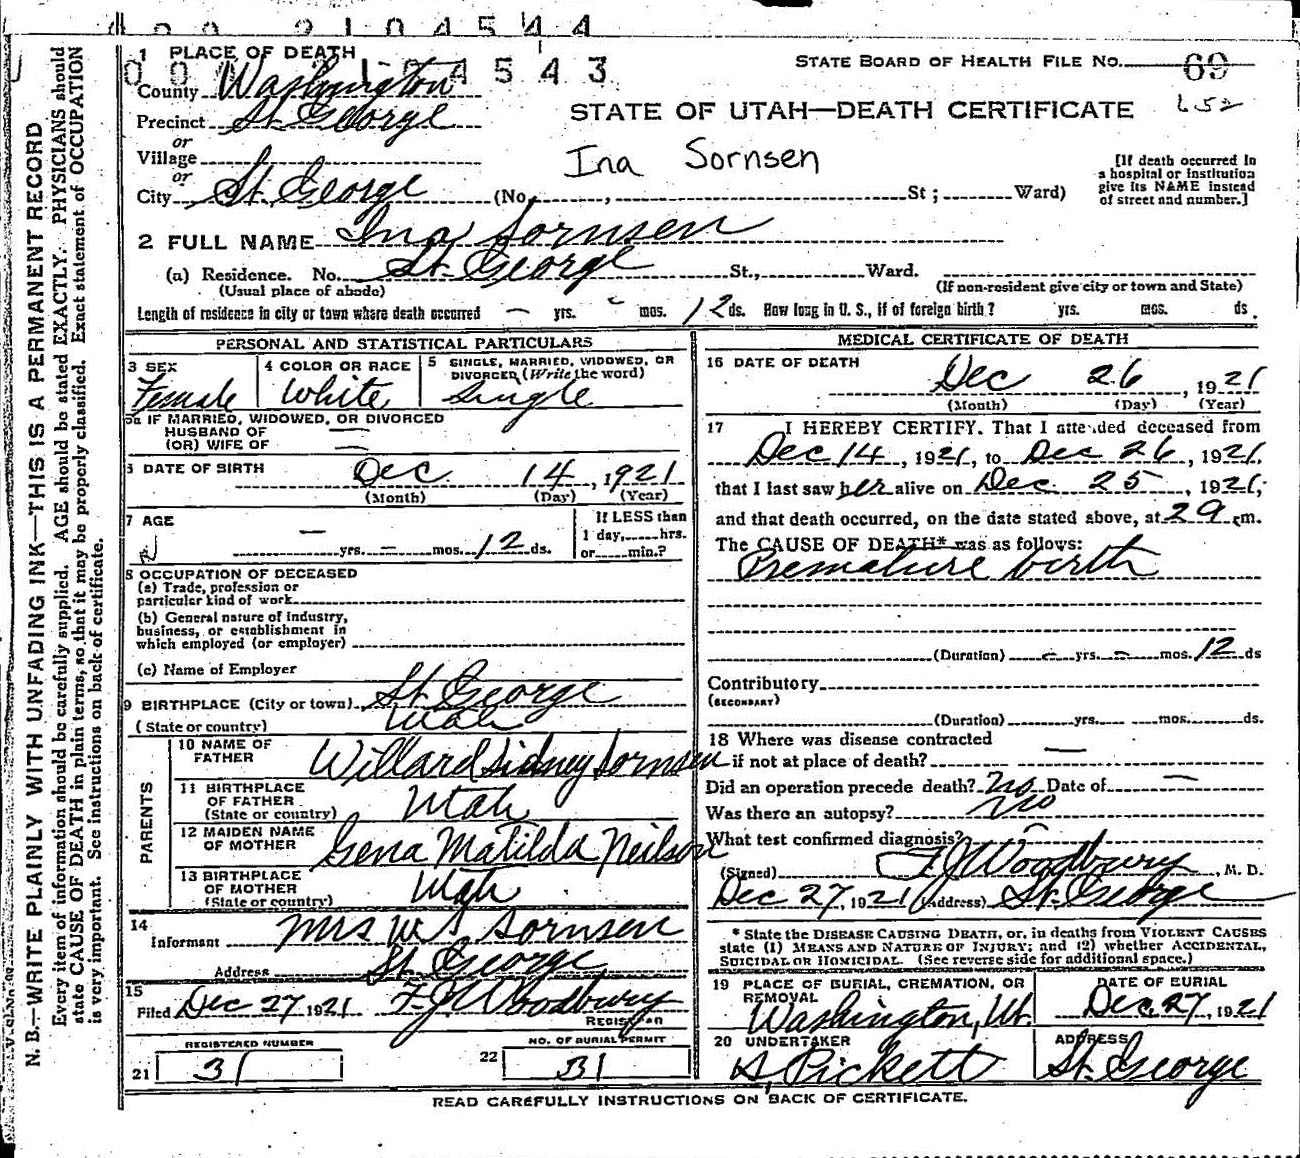 0 0 0 2 1 0 4 5 4 4
1 PLACE OF DEATH
0 0 0 2 1 0 4 5 4 3
STATE BOARD OF HEALTH FILE No. 69
652
County Washington
STATE OF UTAH—DEATH CERTIFICATE
Precinct St. George
or
Village
Ina Sornsen
[If death occurred in a hospital or institution give its NAME instead of street and number.]
or
City St. George (No. , St ; Ward)
2 FULL NAME Ina Sornsen
(a) Residence. No. St. George St., Ward.
(Usual place of abode) (If non-resident give city or town and State)
Length of residence in city or town where death occurred — yrs. - mos. 12 ds. How long in U. S., if of foreign birth? yrs. mos. ds.
PERSONAL AND STATISTICAL PARTICULARS
3 SEX
Female
4 COLOR OR RACE
White
5 SINGLE, MARRIED, WIDOWED, OR DIVORCED, (Write the word)
Single
5a IF MARRIED, WIDOWED, OR DIVORCED
HUSBAND OF —
(OR) WIFE OF —
6 DATE OF BIRTH Dec 14, 1921
(Month) (Day) (Year)
7 AGE
— yrs. — mos. 12 ds.
If LESS than
1 day, hrs.
or min.?
8 OCCUPATION OF DECEASED
(a) Trade, profession or
particular kind of work
(b) General nature of Industry,
business, or establishment in
which employed (or employer)
(c) Name of Employer
9 BIRTHPLACE (City or town) St. George
(State or country) Utah
PARENTS
10 NAME OF FATHER Willard Sidney Sornsen
11 BIRTHPLACE OF FATHER (State or country) Utah
12 MAIDEN NAME OF MOTHER Gena Matilda Neilson
13 BIRTHPLACE OF MOTHER (State or country) Utah
14
Informant Mrs W S Sornsen
Address St. George
15
Filed Dec 27 1921 F. J. Woodbury
REGISTRAR
REGISTERED NUMBER
21 31
NO. OF BURIAL PERMIT
22 31
MEDICAL CERTIFICATE OF DEATH
16 DATE OF DEATH
Dec 26, 1921
(Month) (Day) (Year)
17 I HEREBY CERTIFY. That I attended deceased from
Dec 14, 1921, to Dec 26, 1921,
that I last saw her alive on Dec. 25, 1921,
and that death occurred, on the date stated above, at m.
The CAUSE OF DEATH* was as follows:
Premature birth
(Duration) — yrs. — mos. 12 ds
Contributory
(SECONDARY)
(Duration) yrs. mos. ds.
18 Where was disease contracted
if not at place of death? —
Did an operation precede death? No Date of —
Was there an autopsy? No
What test confirmed diagnosis?
(Signed) F J Woodbury, M. D.
Dec 27, 1921 (Address) St. George
* State the DISEASE CAUSING DEATH, or, in deaths from VIOLENT CAUSES
state (1) MEANS AND NATURE OF INJURY; and (2) whether ACCIDENTAL,
SUICIDAL OR HOMICIDAL. (See reverse side for additional space.)
19 PLACE OF BURIAL, CREMATION, OR REMOVAL
Washington, Ut.
DATE OF BURIAL
Dec. 27, 1921
20 UNDERTAKER
Pickett
ADDRESS
St. George
READ CAREFULLY INSTRUCTIONS ON BACK OF CERTIFICATE.
N. B.—WRITE PLAINLY WITH UNFADING INK—THIS IS A PERMANENT RECORD
Every item of information should be carefully supplied. AGE should be stated EXACTLY. PHYSICIANS should
state CAUSE OF DEATH in plain terms, so that it may be properly classified. Exact statement of OCCUPATION
is very important. See instructions on back of certificate.